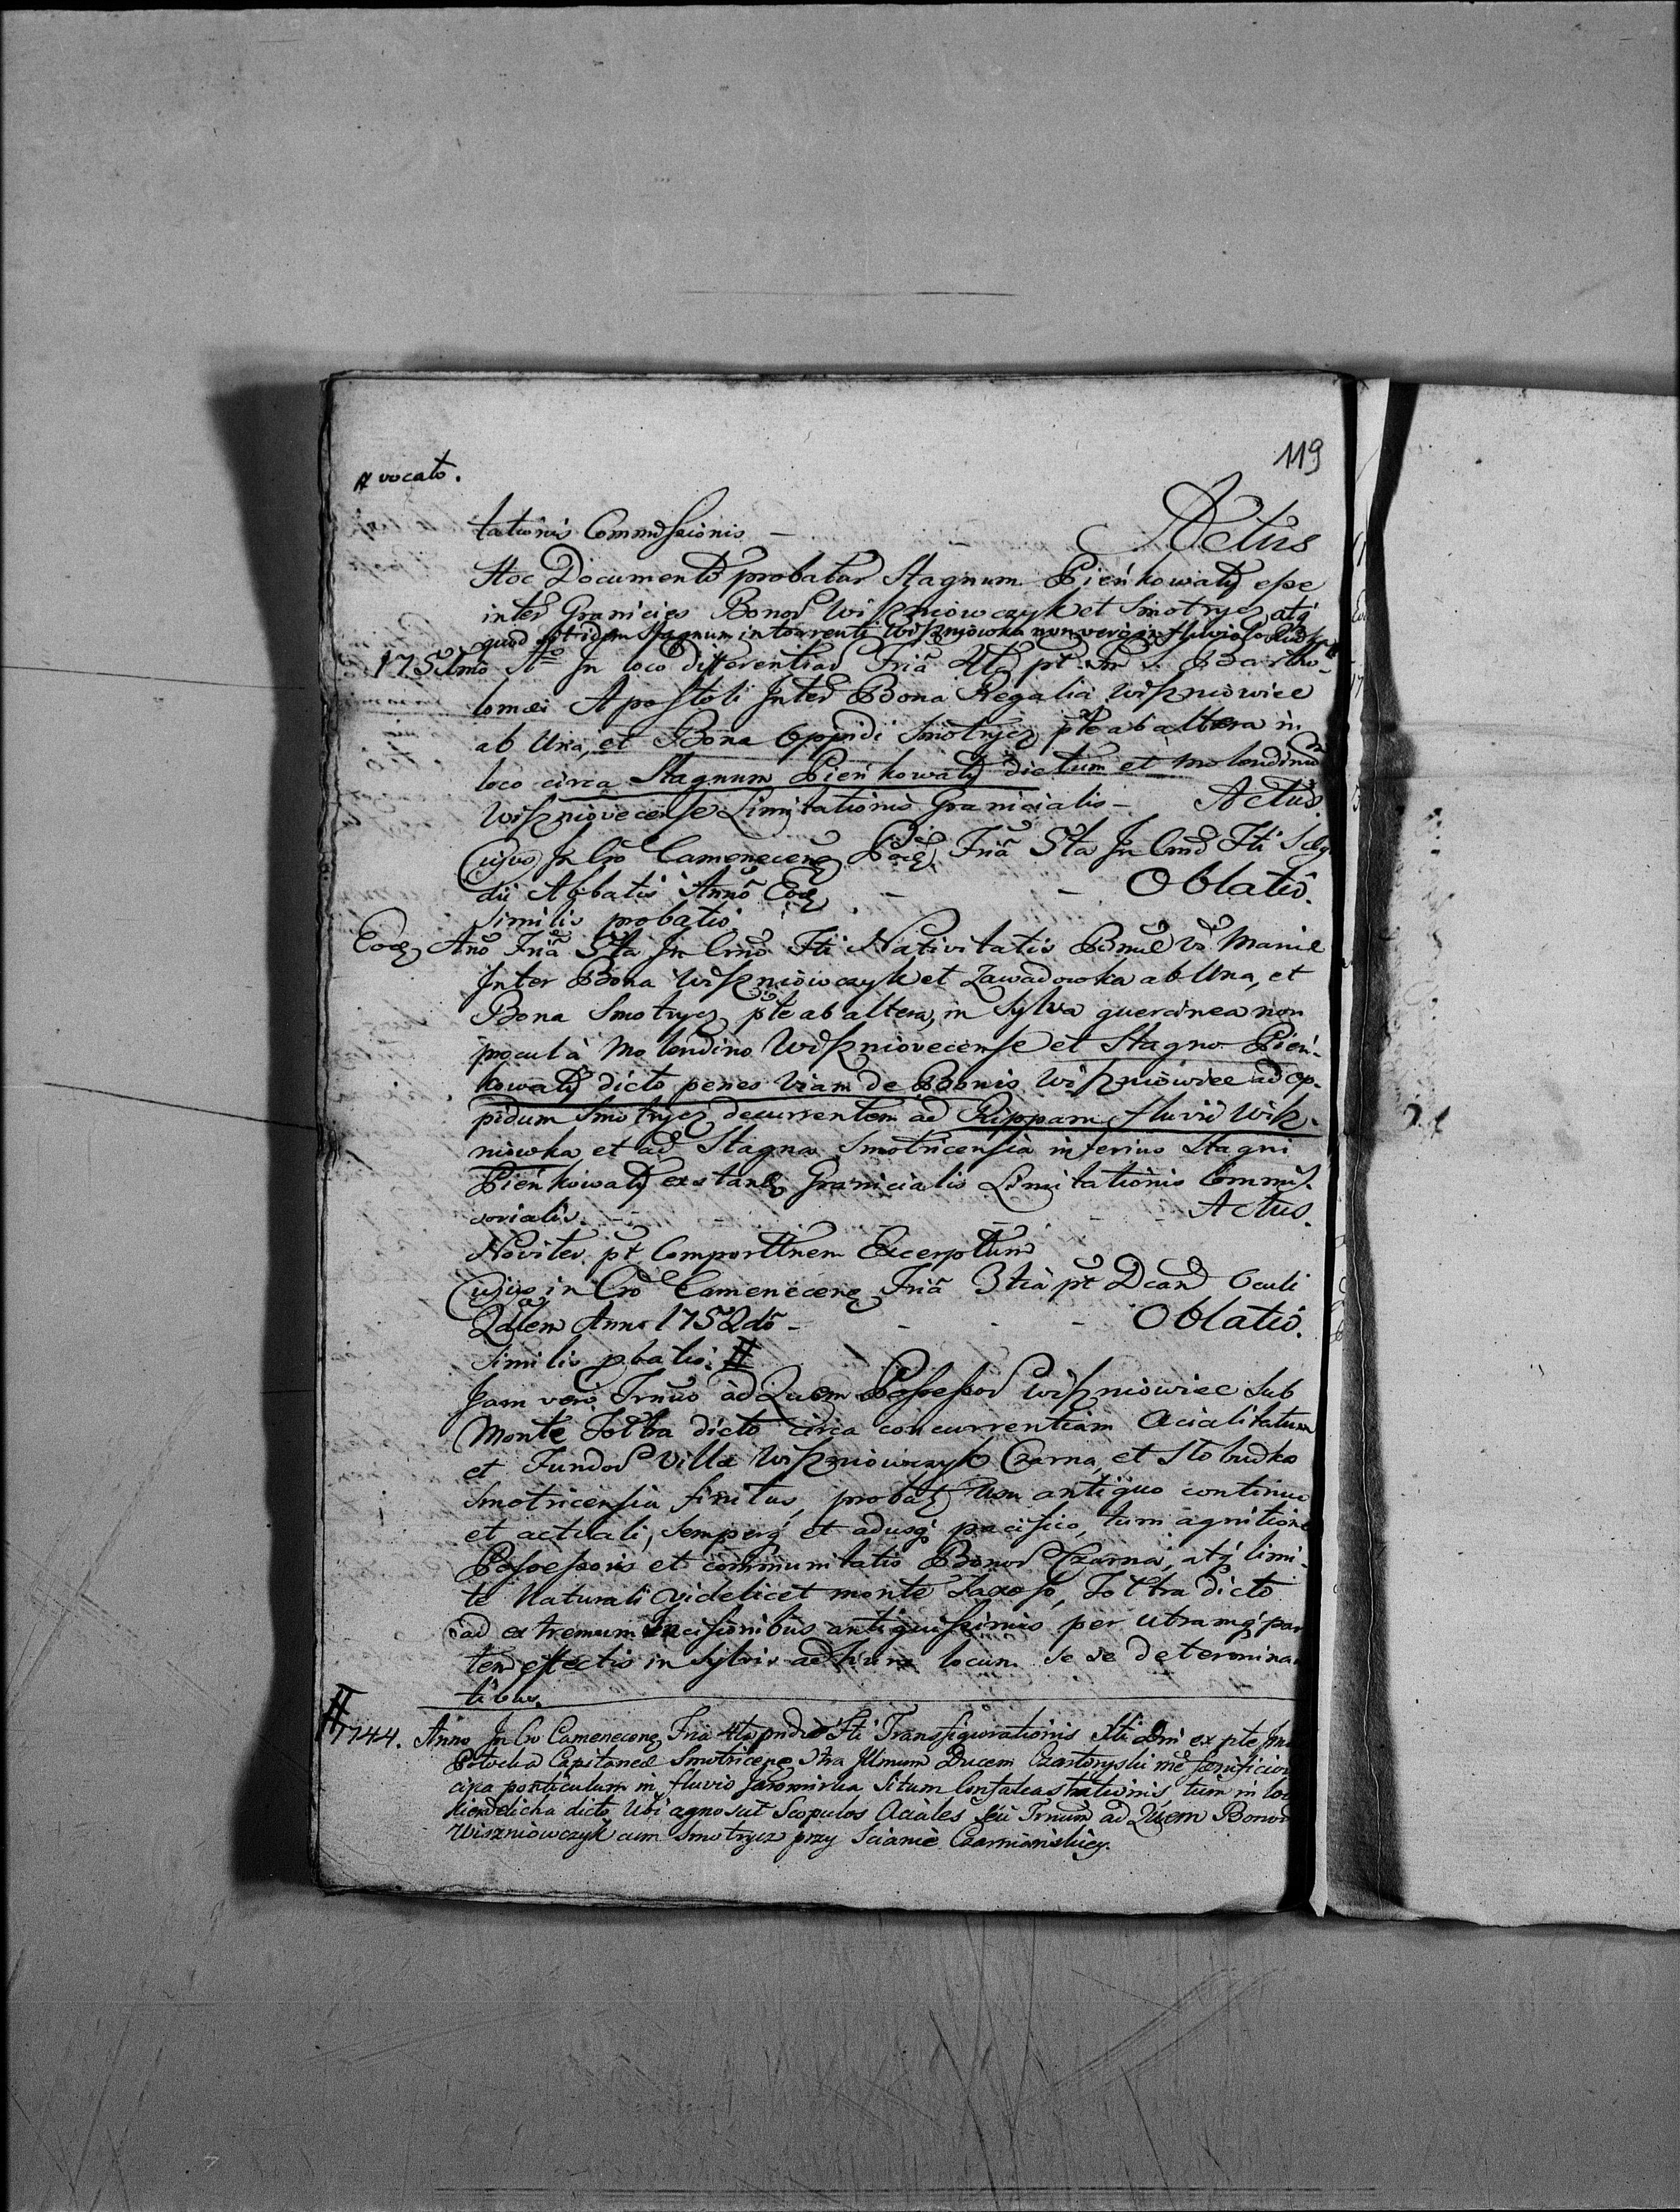 119
# vocato.
tationis Commissionis - - Actus
Hoc Documento probatur Stagnum Pieńkowaty esse
inter Granicies Bonor Wiszniowczyk et Smotrycz atq
quod istidem Stagnum in torrenti Wiszniowka non vero in fluviolo
1751mo Ao In loco differentiar Fria 4ta pt Fm S. Bartho-
lomæi Apostoli Inter Bona Regalia Wiszniowiec
ab Una, et Bona Oppidi Smotrycz pte ab altera in
loco circa Stagnum Pieńkowaty dictum et molendinu
Wiszniovecense Limitationis Granicialis - Actus.
Cujus In Cro Camenecen Fria 5ta In Crno Fti S Aegi-
dii Abbatis Anno Eod - - Oblatio.
Similis probatio
Eod Ano Fria 5ta In Crno Fti Nativitatis Bmæ V Mariæ
Inter Bona Wiszniowczyk et Zawadowka ab Una, et
Bona Smotrycz pte ab altera, in Sylva quercinea non
procul à Molendino Wiszniovecense et Stagno Pień-
kowaty dicto penes Viam de Bonis Wiszniowiec ad Op-
pidum Smotrycz decurrentem ad Rippam fluvii Wisz-
niowka et ad Stagna Smotricensia inferius Stagni
Pieńkowaty exstan Granicialis Limitationis Commis-
sorialis. - - - Actus.
Noviter pt Comporttnem Excerptum
Cujus in Cro Camenecen Fria 3tia pt Dcam Oculi
Qdlem Anno 1752do - - - Oblatio.
Similis pbatio. #
Jam vero Trnus ad Quem Possessor Wiszniowiec Sub
Monte Toltra dicto circa concurrentiam Acialitatum
et Fundor Villæ Wiszniowczyk Czarna, et Stobudka
Smotricensia finitus, probat Usu antiquo continuo
et actuali, semperq et adusq pacifico, tum agnitione
Possessoris et communitatis Bonor Czarna, atq limi-
te Naturali videlicet monte Saxoso, Toltra dicto
ad extremum Incisionibus antiquissimis per utramq par
tem effectis in Sylvis ad hunc locum se se determinan
tibus.
#
1744. Anno In Cro Camenecen Fria 4ta pridie Fti Transfigurationis Xti Dni ex pte
Potocka Capitaneæ Smotricen Ctra Illmum Ducem Czartoryski
circa ponticulum in fluvio Jaromirka Situm tum in loco
dicto, Ubi agnoscit Scopulos Aciales seu Trnum ad Quem Bonor
Wiszniowczyk cum Smotrycz przy Scianie Czarnianskiey.